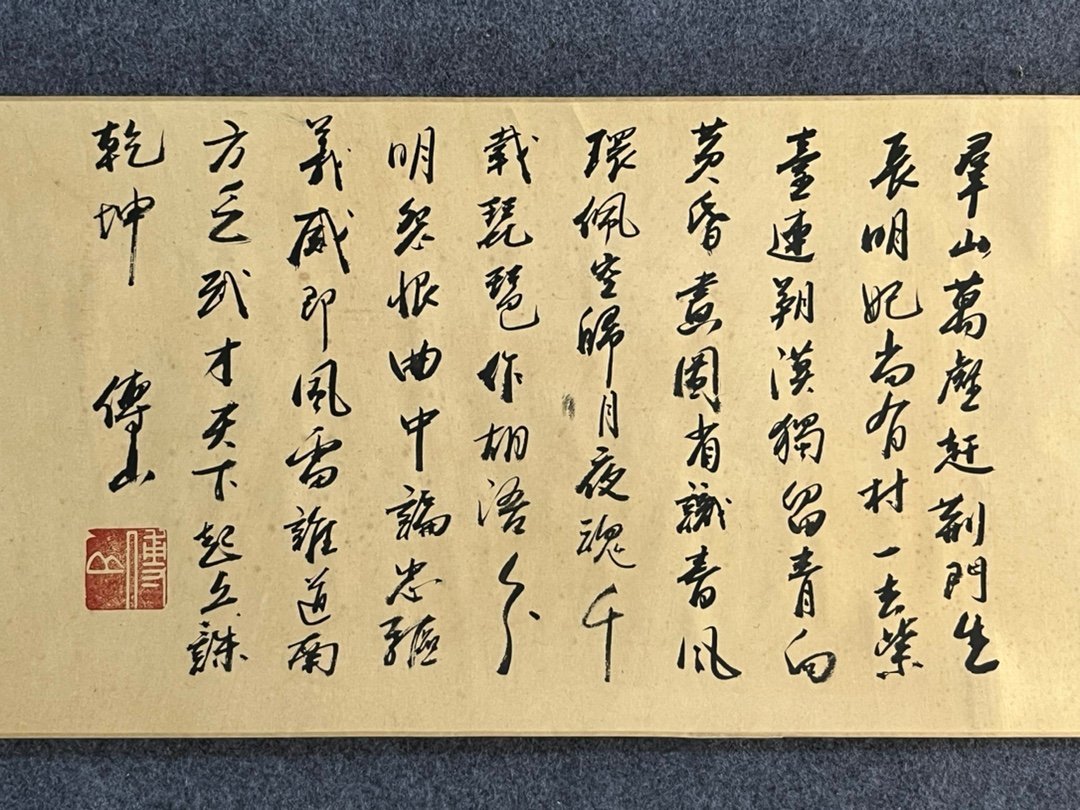 羣山萬壑赴荊門生
長明妃尚有村一去紫
臺連朔漠獨留青向
黃昏畫圖省識春風
環佩空歸月夜魂千
載琵琶作胡語分
明怨恨曲中論忠驅
義感即風雷誰道南
方乏武才天下起兵誅
乾坤 傅山
傅山印